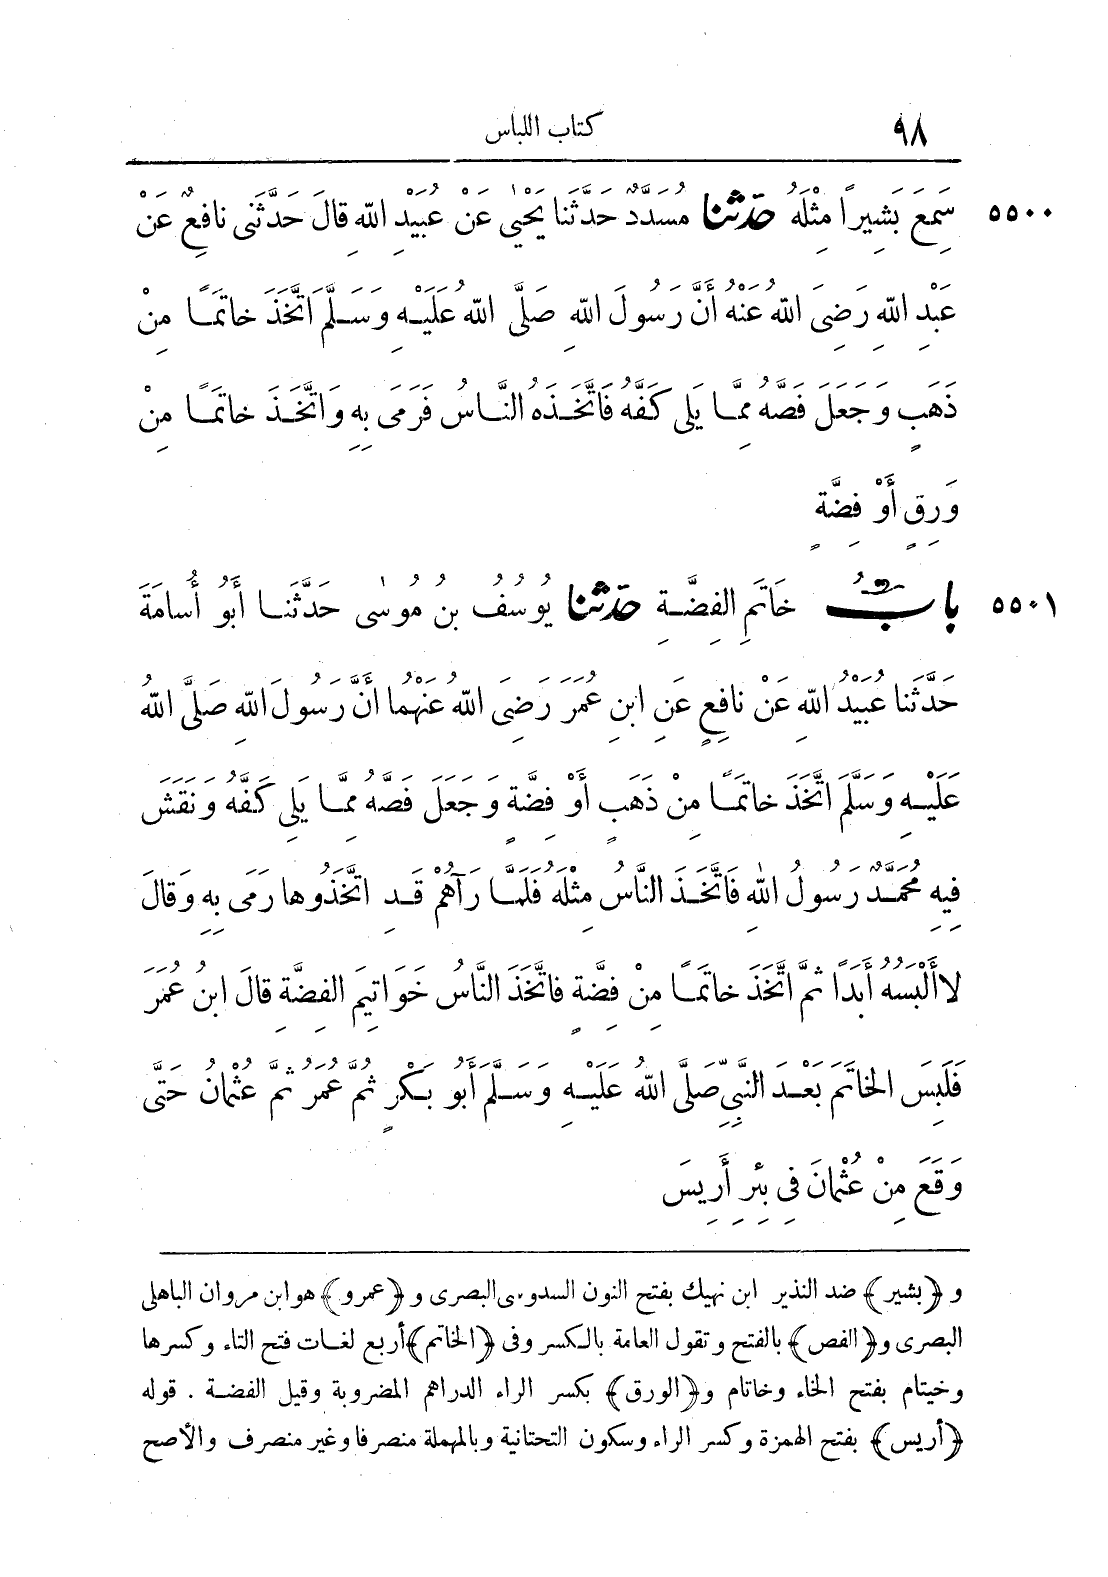 ٩٨ كتاب اللباس
٥٥٠٠ سَمِعَ بَشِيراً مِثْلَهُ حَدَّثَنَا مُسَدَّدٌ حَدَّثَنَا يَحْيٰى عَنْ عُبَيْدِ اللهِ قالَ حَدَّثَنى نافِعٌ عَنْ
عَبْدِ اللهِ رَضِىَ اللهُ عَنْهُ أَنَّ رَسُولَ اللهِ صَلَّى اللهُ عَلَيْهِ وَسَلَّمَ اتَّخَذَ خاتَمًا مِنْ
ذَهَبٍ وَجَعَلَ فَصَّهُ مِمَّا يَلِى كَفَّهُ فَاتَّخَذَهُ النَّاسُ فَرَمَى بِهِ وَاتَّخَذَ خاتَمًا مِنْ
وَرِقٍ أَوْ فِضَّةٍ
٥٥٠١ بابُ خاتَمِ الفِضَّةِ حَدَّثَنَا يُوسُفُ بنُ مُوسٰى حَدَّثَنا أَبُو أُسامَةَ
حَدَّثَنا عُبَيْدُ اللهِ عَنْ نافِعٍ عَنِ ابنِ عُمَرَ رَضِىَ اللهُ عَنْهُما أَنَّ رَسُولَ اللهِ صَلَّى اللهُ
عَلَيْهِ وَسَلَّمَ اتَّخَذَ خاتَمًا مِنْ ذَهَبٍ أَوْ فِضَّةٍ وَجَعَلَ فَصَّهُ مِمَّا يَلِى كَفَّهُ وَنَقَشَ
فِيهِ مُحَمَّدٌ رَسُولُ اللهِ فَاتَّخَذَ النَّاسُ مِثْلَهُ فَلَمَّا رَآهُمْ قَدِ اتَّخَذُوها رَمَى بِهِ وَقالَ
لا أَلْبَسُهُ أَبَداً ثُمَّ اتَّخَذَ خاتَمًا مِنْ فِضَّةٍ فاتَّخَذَ النَّاسُ خَوَاتِيمَ الفِضَّةِ قالَ ابنُ عُمَرَ
فَلَبِسَ الخَاتَمَ بَعْدَ النَّبِىِّ صَلَّى اللهُ عَلَيْهِ وَسَلَّمَ أَبُو بَكْرٍ ثُمَّ عُمَرُ ثُمَّ عُثْمانُ حَتَّى
وَقَعَ مِنْ عُثْمانَ فِى بِئْرِ أَرِيسَ
و ﴿بشير﴾ ضد النذير ابن نهيك بفتح النون السدوسى البصرى و ﴿عمرو﴾ هو ابن مروان الباهلى
البصرى و ﴿الفص﴾ بالفتح وتقول العامة بالكسر وفى ﴿الخاتم﴾ أربع لغات فتح التاء وكسرها
وخيتام بفتح الخاء وخاتام و ﴿الورق﴾ بكسر الراء الدراهم المضروبة وقيل الفضة . قوله
﴿أريس﴾ بفتح الهمزة وكسر الراء وسكون التحتانية وبالمهملة منصرفا وغير منصرف والأصح